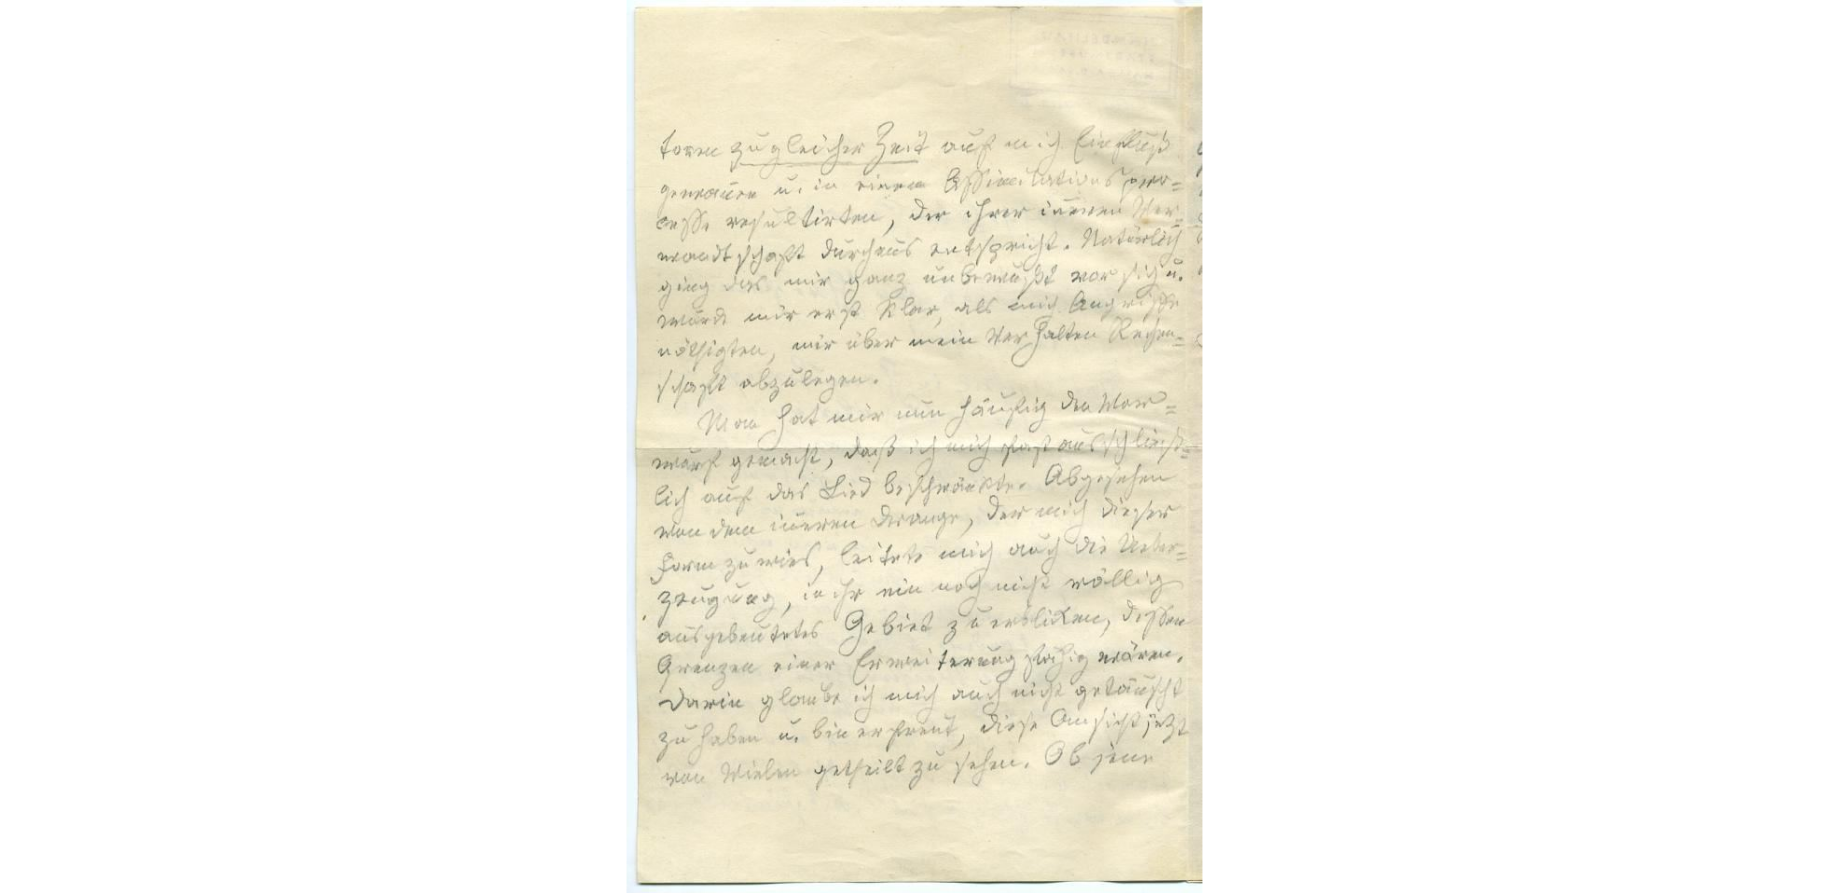 toren zu gleicher Zeit auf mich Einfluß
gewannen u. in einem Assimilationspro=
cesse resultirten, der ihrer inneren Ver=
wandtschaft durchaus entspricht. Natürlich
ging das mir ganz unbewußt vor sich u.
wurde mir erst klar, als mich Angriffe
nöthigten, mir über mein Verhalten Rechen=
schaft abzulegen.
Man hat mir nun häufig den Vor=
wurf gemacht, daß ich mich fast ausschließ=
lich auf das Lied beschränkte. Abgesehen
von dem inneren Drange, der mich dieser
Form zuwies, leitete mich auch die Ueber=
zeugung, in ihr ein noch nicht völlig
ausgebeutetes Gebiet zu erblicken, dessen
Grenzen einer Erweiterung fähig wären.
Darin glaube ich mich auch nicht getäuscht
zu haben u. bin erfreut, diese Ansicht jetzt
von Vielen getheilt zu sehen. Ob jene